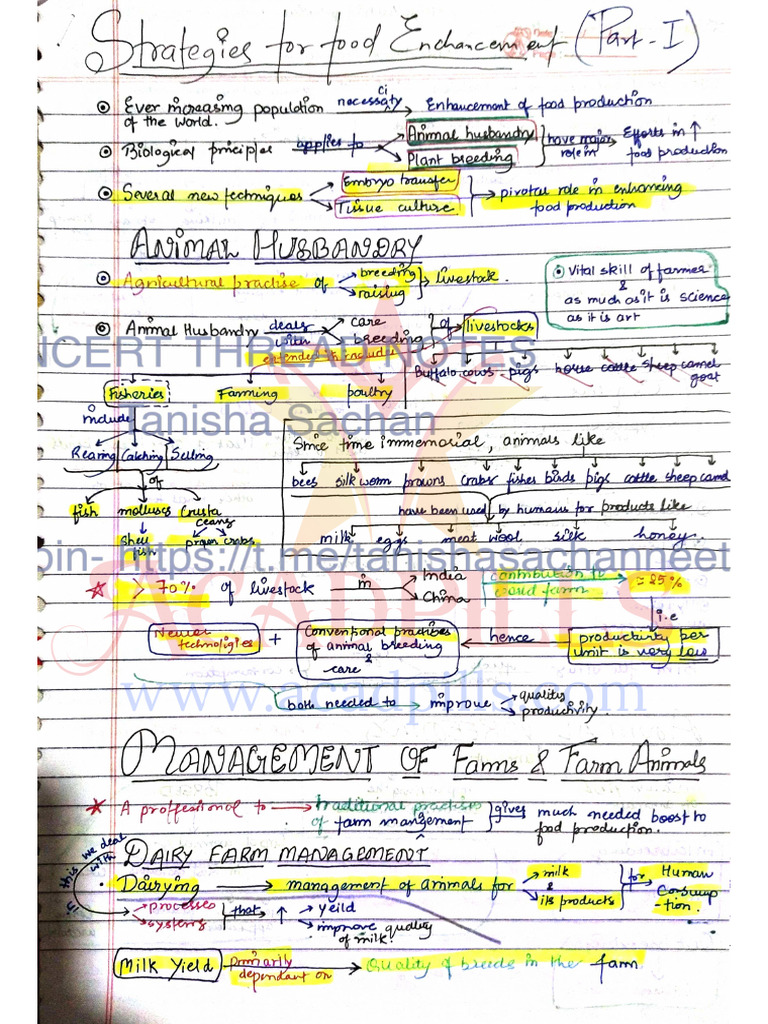 Strategies for food Enchancement (Part-I)
Ever increasing population necessaty → Enhaucement of food production
of the world.
Biological principles applies to → Animal husbandry
Plant breeding
have major role in → Efforts in ↑ food production
Several new techniques → Embryo transfer
Tissue culture
→ pivotal role in enhancing food production
ANIMAL HUSBANDRY
Agricultural practise of → breeding
raising
→ livestock.
Vital skill of farmer
&
as much as it is science
as it is art
Animal Husbandry deals with → care
breeding
of livestocks
extended to includes
NCERT THREAD NOTES
Buffalo cows pigs horse cattle sheep camel
goat
Fisheries Farming poultry
include
Tanisha Sachan
Rearing Catching Selling
of
fish molluscs Crusta
ceans
shell
fish
prawn crabs
Since time immemorial, animals like
bees silk worm prawns crabs fishes birds pigs cattle sheep camel
have been used by humans for products like
milk eggs meat wool silk honey.
oin- https://t.me/tanishasachanneet
> 70% of livestock in → India
China
contribution to
world farm
≈ 25%
i.e
ACADPILLS
Newer
technologies + Conventional practises
of animal breeding
&
care
← hence productivity per
unit is very low
www.acadpills.com
both needed to → improve → quality
productivity.
MANAGEMENT OF Farms & Farm Animals
A proffesional to → traditional practises
of farm mangement
gives much needed boost to
food production.
DAIRY FARM MANAGEMENT
in this we deal with
Dairying → management of animals for → milk
&
its products
for → Human
Consump
-tion.
processes
systems
that ↑ → yeild
improve quality
of milk.
Milk Yield primarily
dependant on → Quality of breeds in the farm